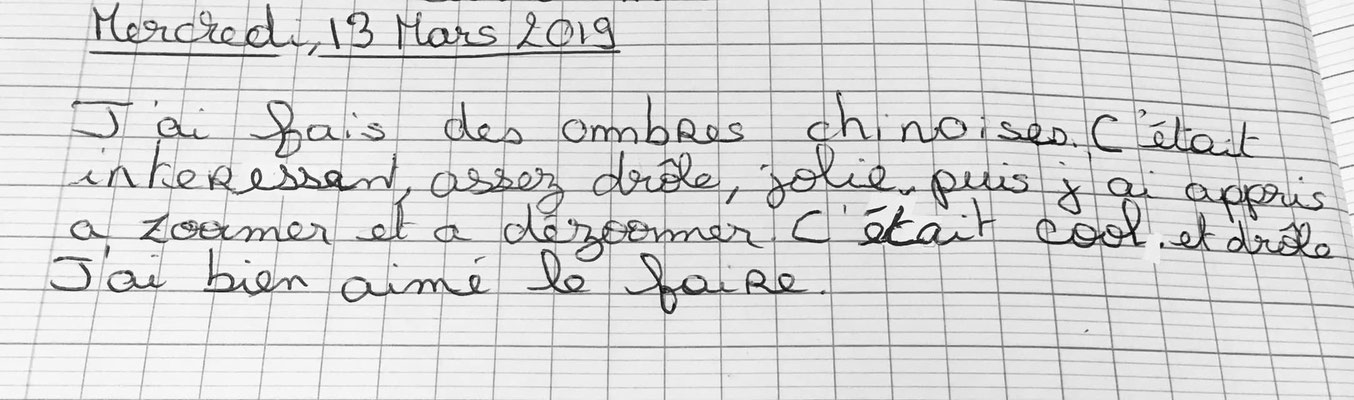 Mercredi, 13 Mars 2019
J'ai fais des ombres chinoises. C'était
interessant, assez drôle, jolie. puis j'ai appris
a zoomer et a dézoomer. C'était cool. et drôle
J'ai bien aimé le faire.